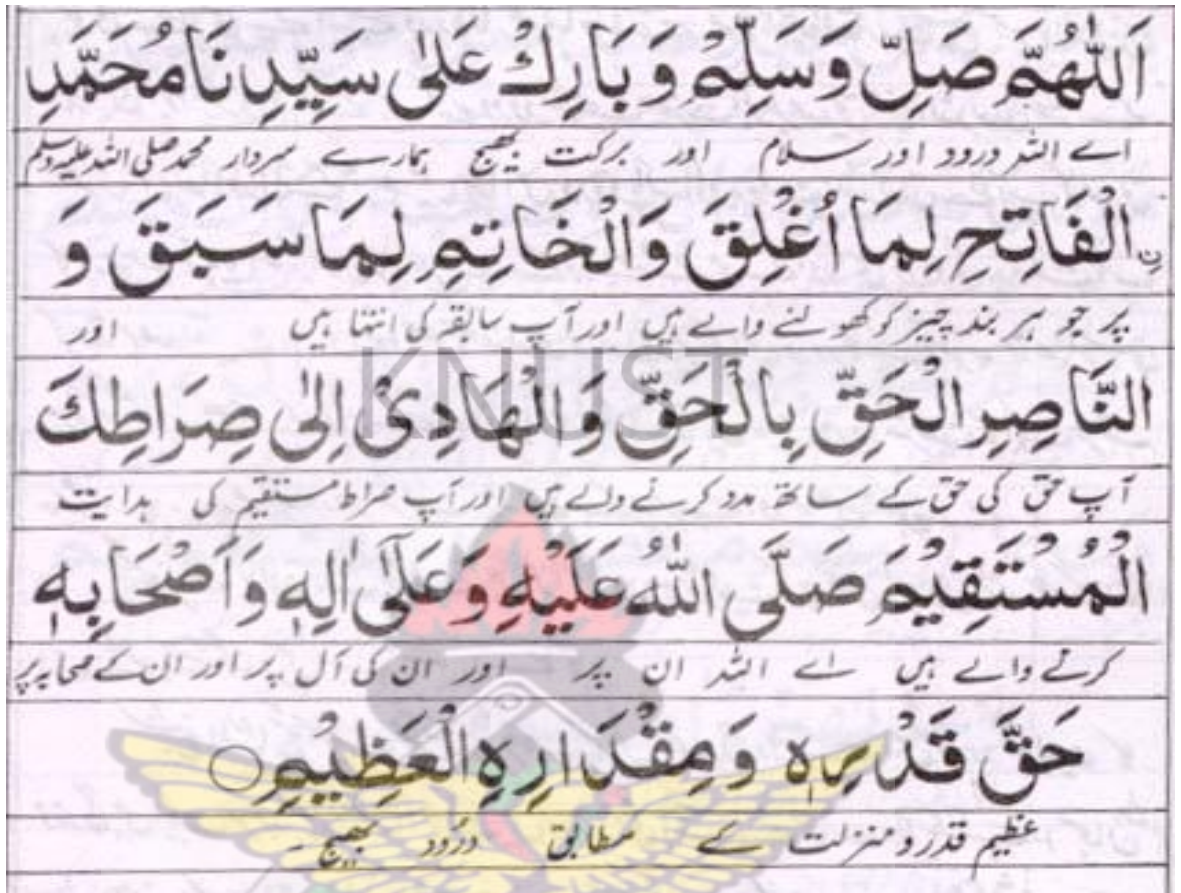 اَللّٰهُمَّ صَلِّ وَسَلِّمْ وَبَارِكْ عَلٰى سَيِّدِنَا مُحَمَّدِ
اے اللہ درود اور سلام اور برکت بھیج ہمارے سردار محمد صلی اللہ علیہ وسلم
نِ الْفَاتِحِ لِمَا أُغْلِقَ وَالْخَاتِمِ لِمَا سَبَقَ وَ
پر جو ہر بند چیز کو کھولنے والے ہیں اور آپ سابقہ کی انتہا ہیں اور
KNUST
النَّاصِرِ الْحَقِّ بِالْحَقِّ وَالْهَادِیْ اِلٰى صِرَاطِكَ
آپ حق کی حق کے ساتھ مدد کرنے والے ہیں اور آپ صراط مستقیم کی ہدایت
الْمُسْتَقِيْمَ صَلَّى اللّٰهُ عَلَيْهِ وَعَلٰٓى اٰلِهٖ وَاَصْحَابِهٖ
کرنے والے ہیں اے اللہ ان پر اور ان کی آل پر اور ان کے صحابہ پر
حَقَّ قَدْرِهٖ وَمِقْدَارِهِ الْعَظِيْمِ ○
عظیم قدر و منزلت کے مطابق درُود بھیج ۔